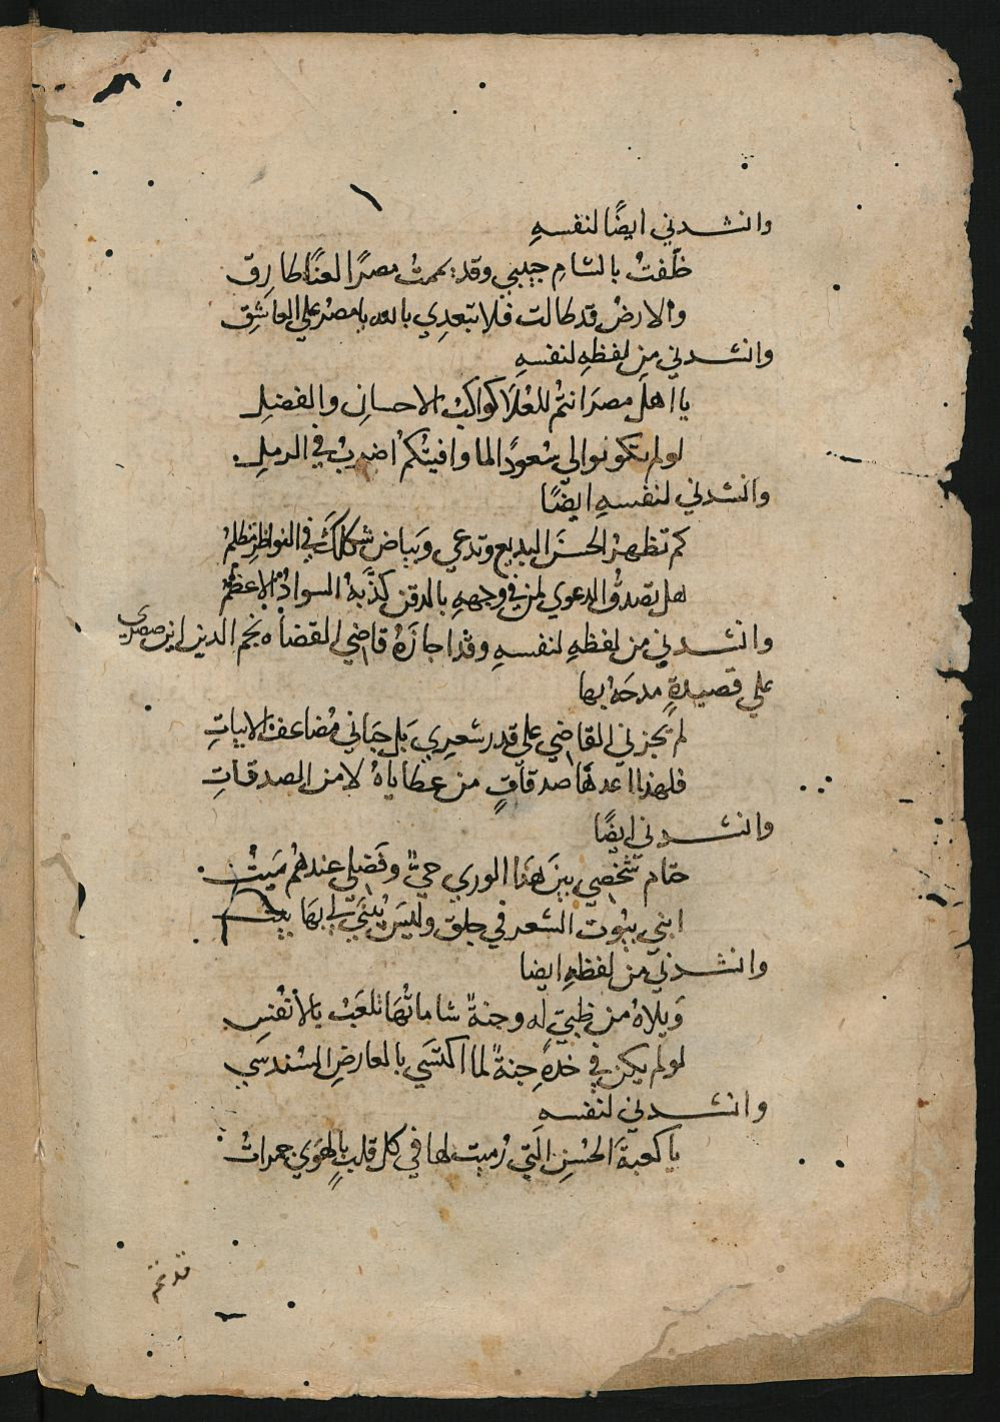 وانشدني ايضًا لنفسهِ
خلّفتُ بالشامِ حبيبي وقد يممتُ مصرًا لعنًا طارِق
والارضُ قد طالت فلا تبعدِي بالله يا مصرُ علي العاشِقِ
وانشدني من لفظهِ لنفسهِ
يا اهلَ مصرَ انتُم للعُلَا كواكبُ الاحسانِ والفضلِ
لو لم تكونوا لي سُعودًا لما وافيتُكم اضربُ في الرملِ
وانشدني لنفسهِ ايضًا
كم تظهرُ الحسنَ البديع وتدعي وبياض شكلكَ في النواظرِ مظلمُ
هل تصدقُ الدعوي لمن في وجههِ بالذقن كذّبهُ السوادُ الاعظمُ
وانشدني من لفظهِ لنفسهِ وقد اجازَهُ قاضي القضاه نجم الدين ابن صصرى
علي قصيدةٍ مدحَهُ بها
لم يجزني القاضي علي قدر شعرِي بَل حَباني مُضاعف الابياتِ
فلهذا اعدهَا صدقاتٍ من عطاياهُ لا من الصدقاتِ
وانشدني ايضًا
حتام شخصِي بينَ هَذا الوري حيٌّ وفَضلي عندهُم مَيتُ
ابني بيُوت الشعر في جلق وليسَ يُبنَي لي بهَا بيت
وانشدني من لفظهِ ايضا
وَيلاهُ من ظبيٍ له وجنةٌ شاماتُهَا تلعَبُ بالأنفُسِ
لو لم يكن في خدهِ جنةٌ لما اكتسَي بالعارضِ السُندسي
وانشدني لنفسهِ
يا كعبةَ الحُسنِ التي رُميت لها في كل قلبٍ بالهَوي جمراتُ